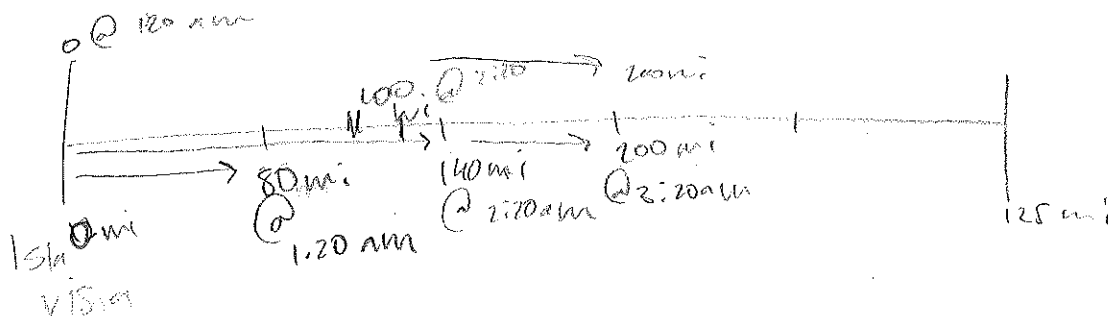 0 @ 1:20 am
100 mi @ 2:20
200 mi
80 mi
@
1.20 am
140 mi
@ 2:20 am
200 mi
@ 3:20 am
125 mi
0 mi